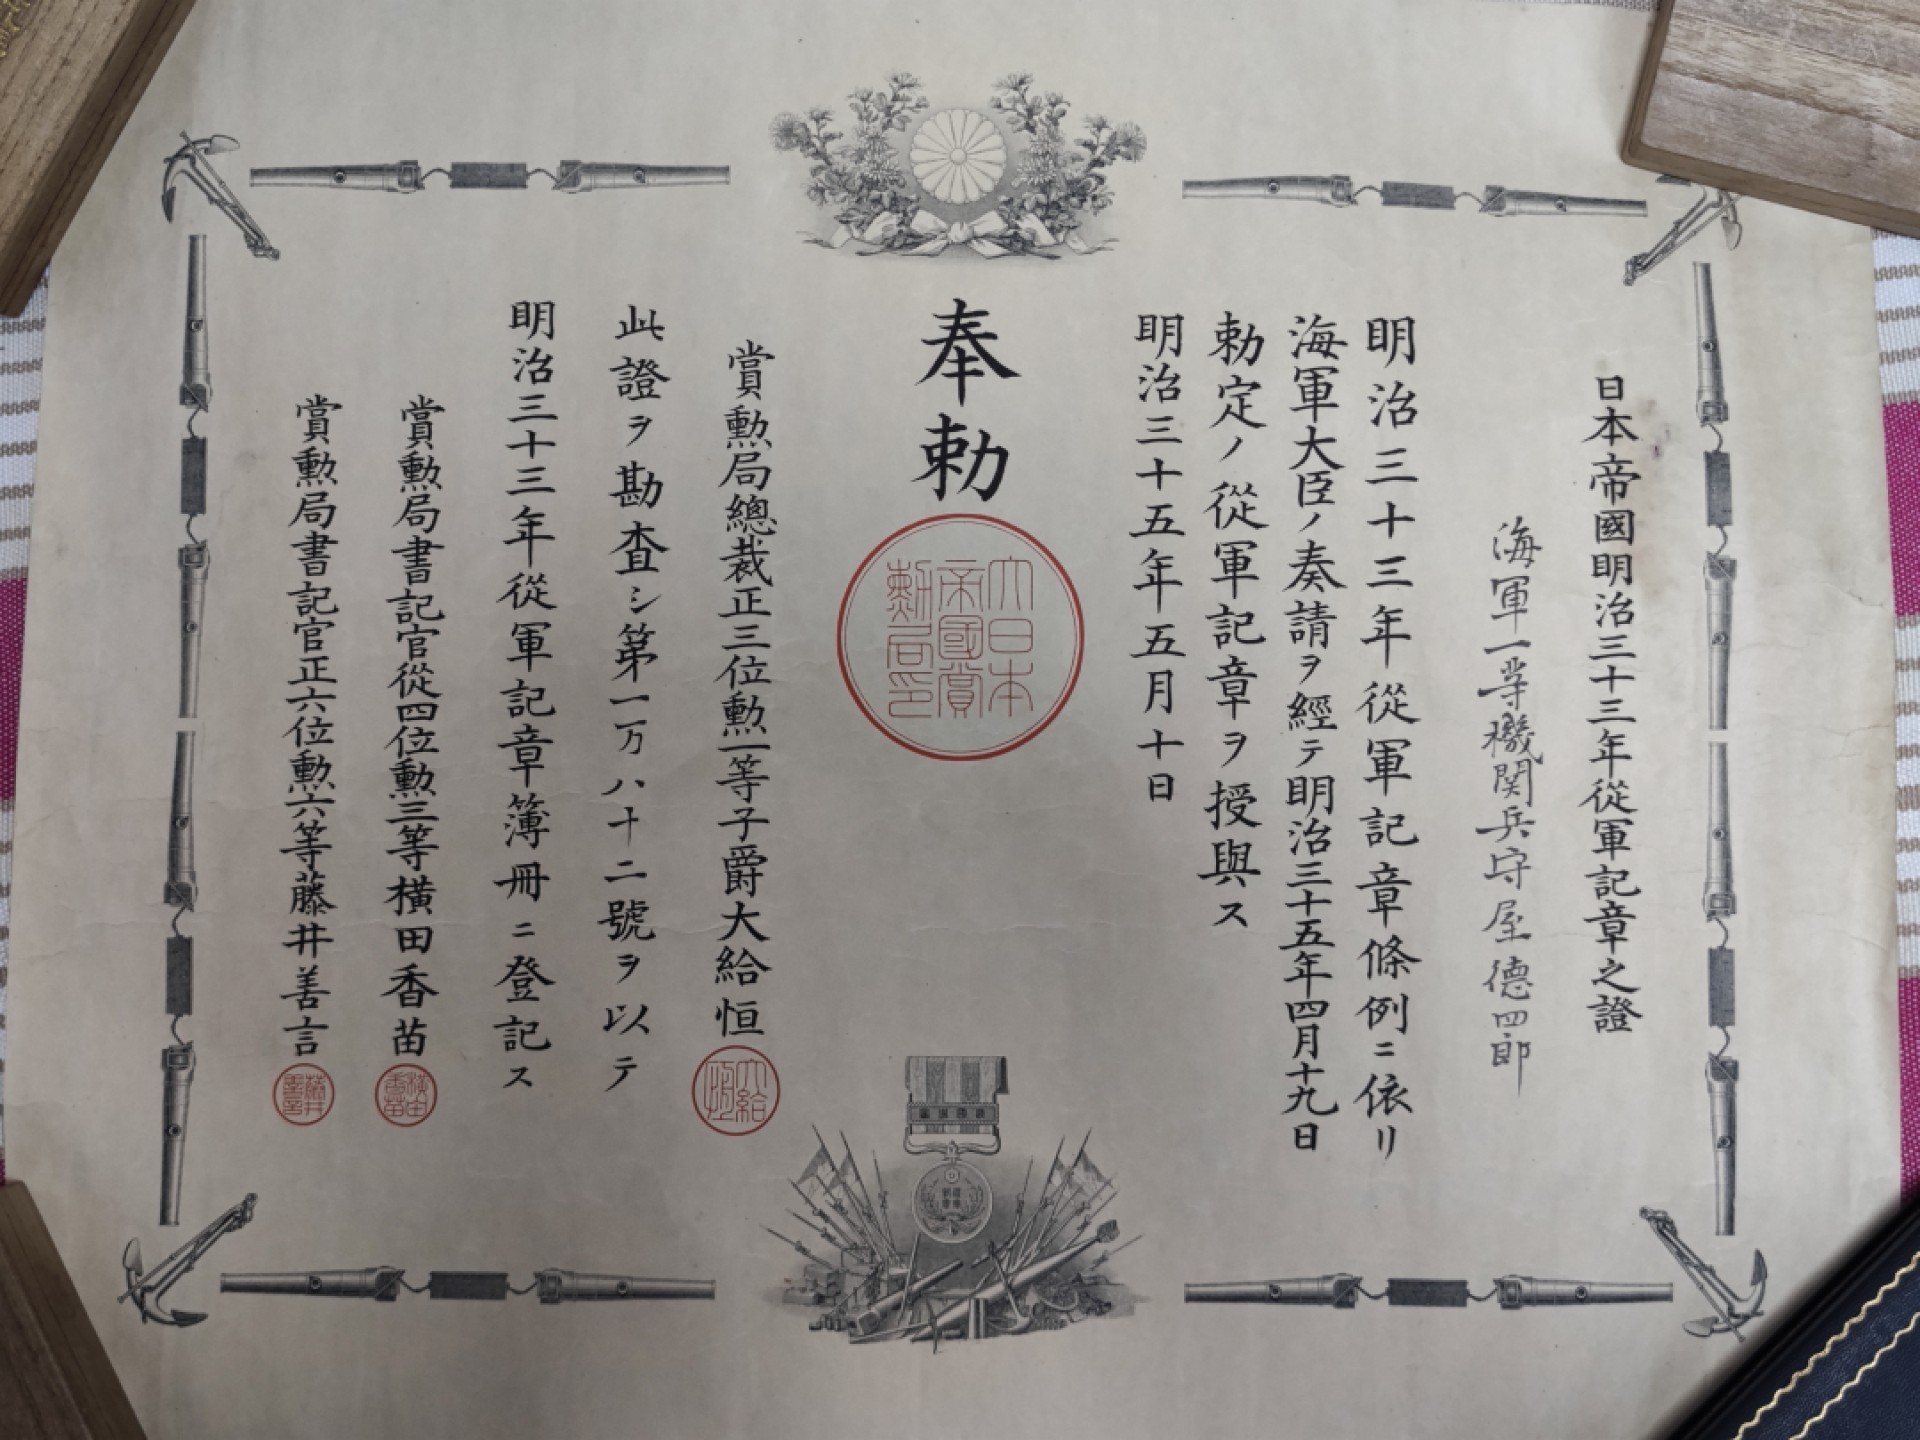 日本帝國明治三十三年從軍記章之證
海軍一等機関兵守屋德四郎
明治三十三年從軍記章條例ニ依リ
海軍大臣ノ奏請ヲ經テ明治三十五年四月十九日
勅定ノ從軍記章ヲ授與ス
明治三十五年五月十日
奉勅
大日本
帝國賞
勲局印
賞勲局總裁正三位勲一等子爵大給恒
大給
恒
此證ヲ勘査シ第一万八十二號ヲ以テ
明治三十三年從軍記章簿冊ニ登記ス
賞勲局書記官從四位勲三等横田香苗
横田
香苗
賞勲局書記官正六位勲六等藤井善言
藤井
善言